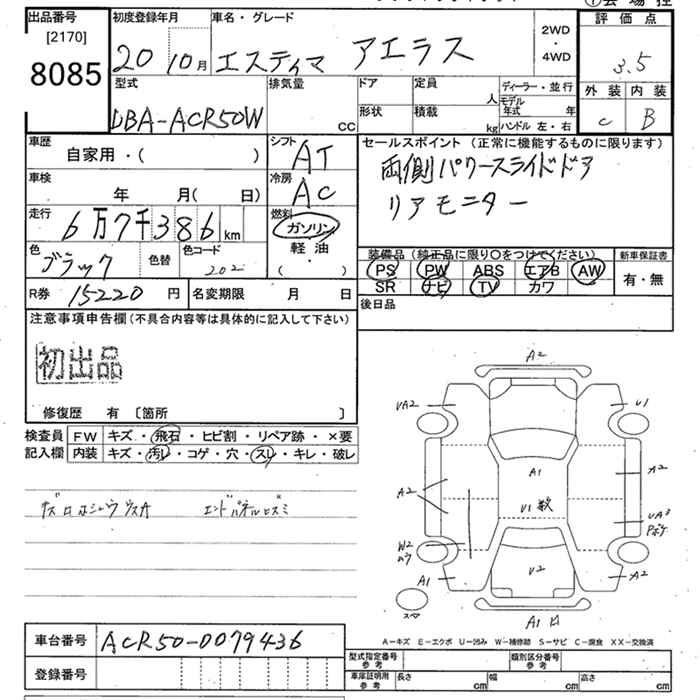 出品番号
[2170]
8085
初度登録年月
20 10月
車名・グレード
エスティマ アエラス
2WD
・
4WD
評価点
3.5
外装 内装
C B
型式
DBA-ACR50W
排気量
CC
ドア
形状
定員
人
積載
kg
ディーラー・並行
モデル年式 年
ハンドル 左・右
車歴
自家用・( )
シフト
AT
セールスポイント(正常に機能するものに限ります)
両側パワースライドドア
リアモニター
車検
年 月( 日)
冷房
AC
走行
6万7千386km
燃料
ガソリン
軽油
( ・ )
色
ブラック
色替
色コード
202
装備品(純正品に限り〇をつけてください)
PS PW ABS エアB AW
SR ナビ TV カワ
新車保証書
有・無
R券 15220円
名変期限 月 日
後日品
注意事項申告欄(不具合内容等は具体的に記入して下さい)
初出品
修復歴 有〔箇所 〕
検査員記入欄
FW キズ・飛石・ヒビ割・リペア跡・×要
内装 キズ・汚レ・コゲ・穴・スレ・キレ・破レ
エンドパネルヒズミ
A2
UA2
U1
A1
A2
A2
U1数
UA3
Pボケ
W2
ムラ
A1
U2
A2
スペア
A1
A-キズ E-エクボ U-凹み W-補修跡 S-サビ C-腐食 XX-交換済
車台番号
ACR50-0079436
登録番号
型式指定番号
参考
類別区分番号
参考
車庫証明用
参考
長さ cm 幅 cm 高さ cm